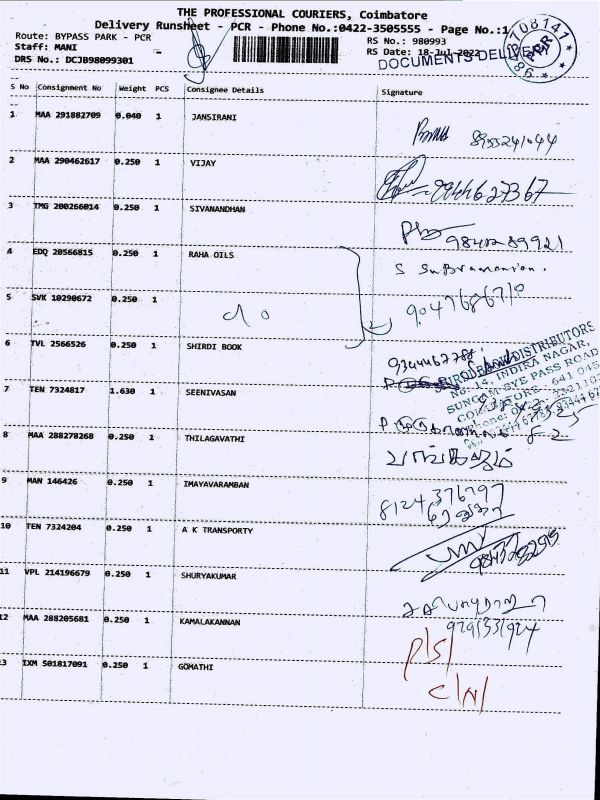 THE PROFESSIONAL COURIERS, Coimbatore
Delivery Runsheet - PCR - Phone No.:0422-3505555 - Page No.:1
Route: BYPASS PARK - PCR
RS No.: 980993
Staff: MANI
RS Date: 18-Jul-2022
DRS No.: DCJB98099301
DOCUMENTS DELIVE
708141
PCR
S No Consignment No Weight PCS Consignee Details Signature
1 MAA 291882709 0.040 1 JANSIRANI
8955241044
2 MAA 290462617 0.250 1 VIJAY
9944627367
3 TMG 200266014 0.250 1 SIVANANDHAN
9840289921
4 EDQ 20566815 0.250 1 RAHA OILS
S Subramanian.
5 SVK 10290672 0.250 1 do
9047686710
6 TVL 2566526 0.250 1 SHIRDI BOOK
9344467788
DISTRIBUTORS
No. 14, INDIRA NAGAR,
SUNGAM-BYE PASS ROAD
COIMBATORE - 641 045
7 TEN 7324817 1.630 1 SEENIVASAN
8 MAA 288278268 0.250 1 THILAGAVATHI
9 MAN 146426 0.250 1 IMAYAVARAMBAN
8124376797
10 TEN 7324204 0.250 1 A K TRANSPORTY
11 VPL 214196679 0.250 1 SHURYAKUMAR
12 MAA 288205681 0.250 1 KAMALAKANNAN
9791331924
P/S/
13 IXM 501817091 0.250 1 GOMATHI
C/N/